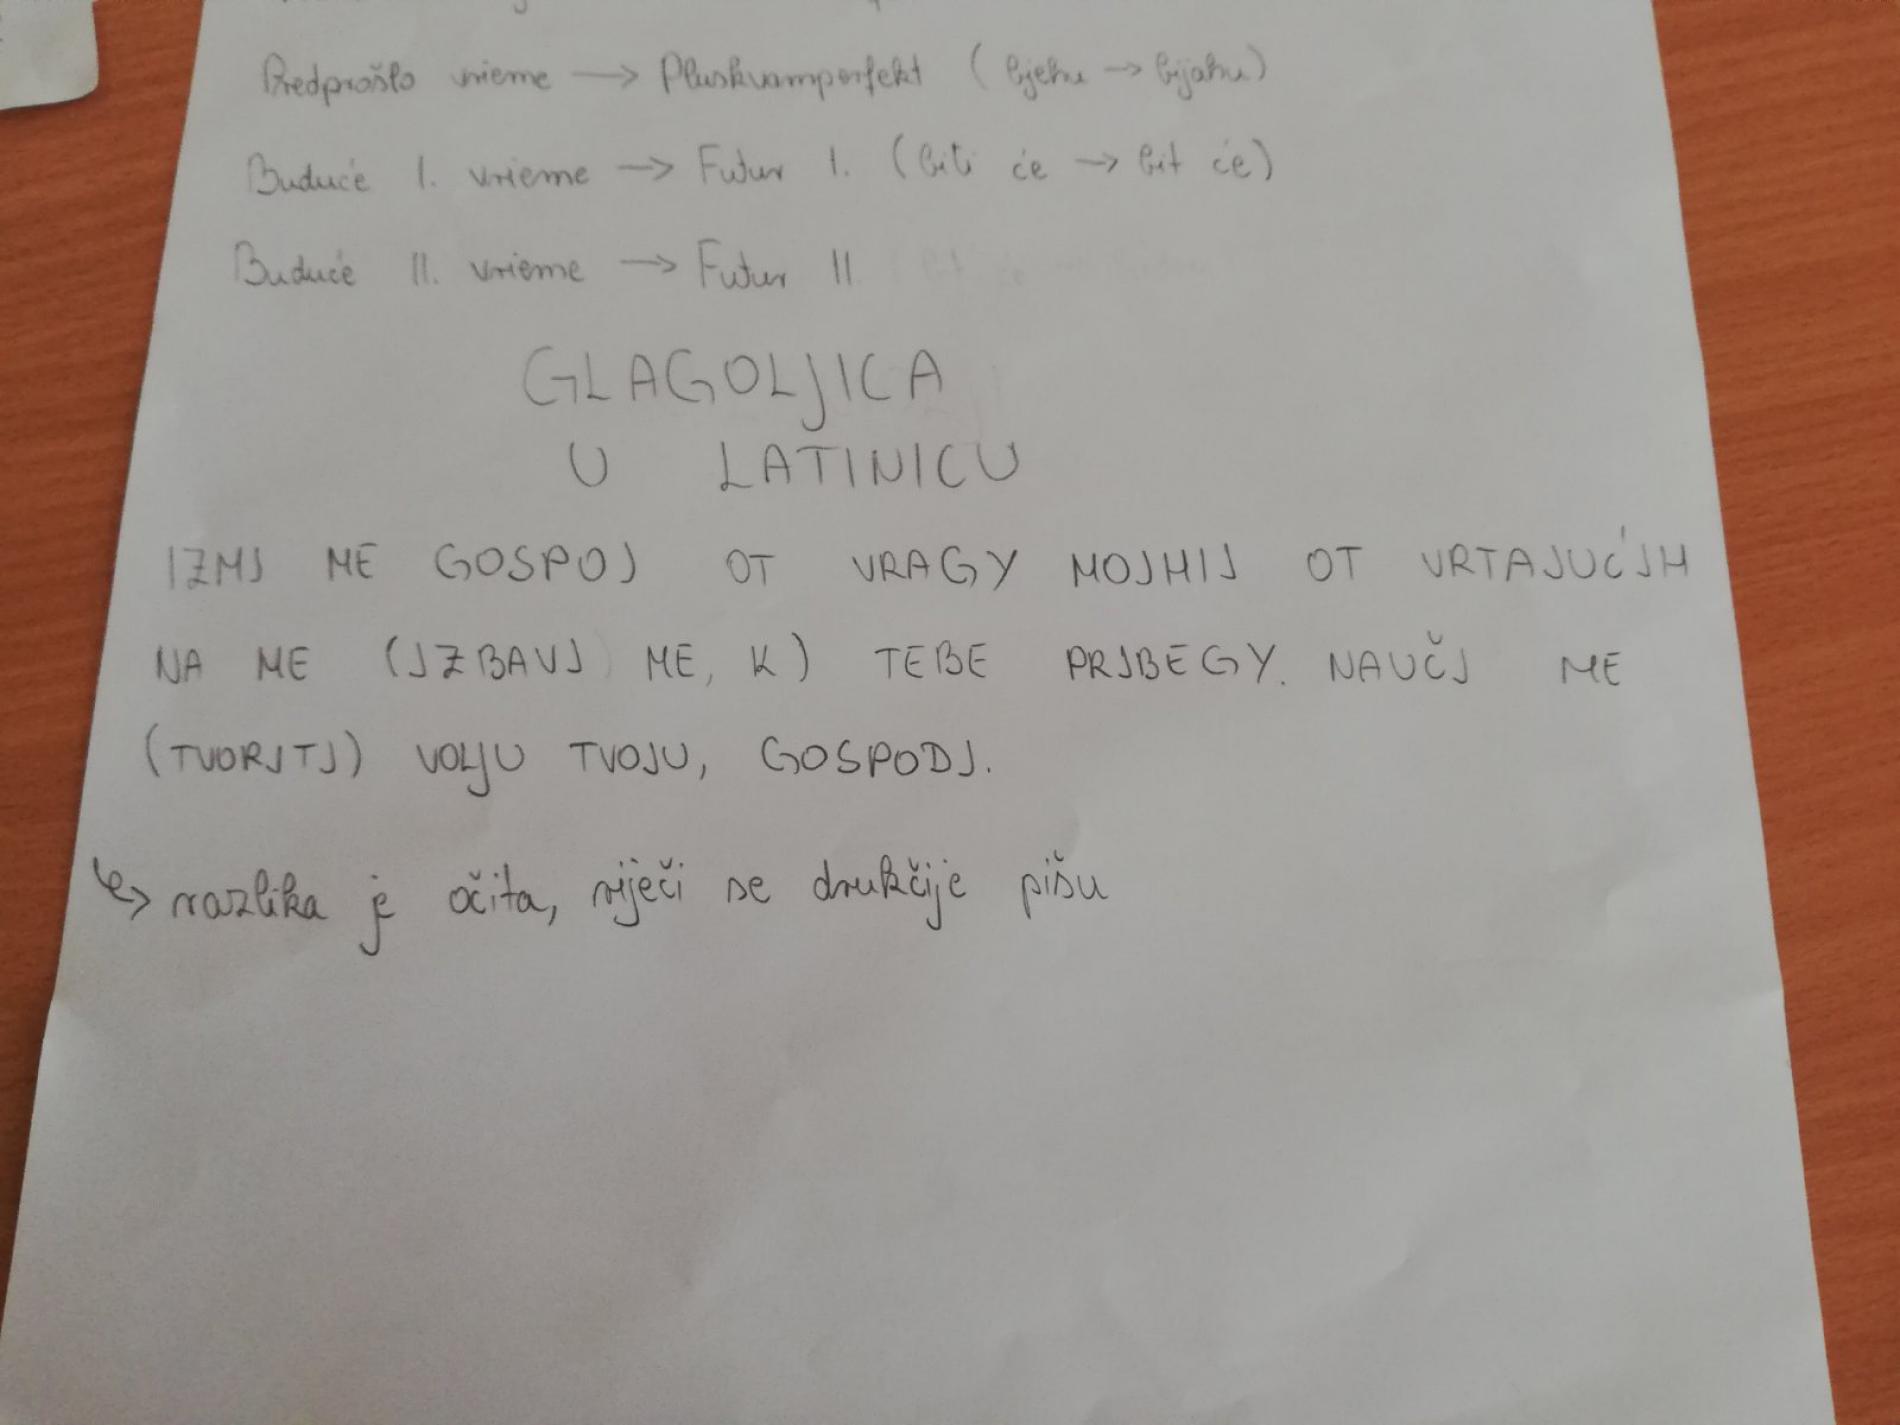 Predprošlo vrieme → Pluskvamperfekt (bjehu → bijahu)
Buduće I. vrieme → Futur I. (biti će → bit će)
Buduće II. vrieme → Futur II
GLAGOLJICA
U LATINICU
IZMJ ME GOSPOJ OT VRAGY MOJHIJ OT VRTAJUĆJH
NA ME (JZBAVJ ME, K) TEBE PRJBEGY. NAUČJ ME
(TVORJTJ) VOLJU TVOJU, GOSPODJ.
↳ razlika je očita, riječi se drukčije pišu